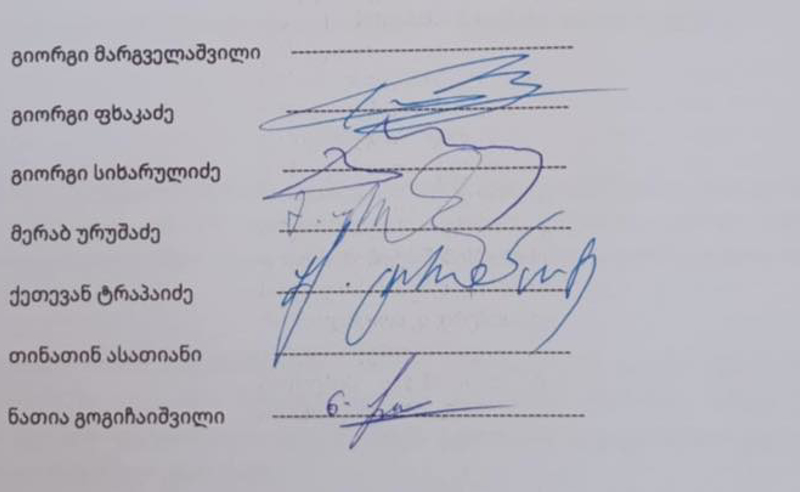 გიორგი მარგველაშვილი
გიორგი ფხაკაძე
გიორგი სიხარულიძე
მერაბ ურუშაძე
ქეთევან ტრაპაიძე
თინათინ ასათიანი
ნათია გოგიჩაიშვილი